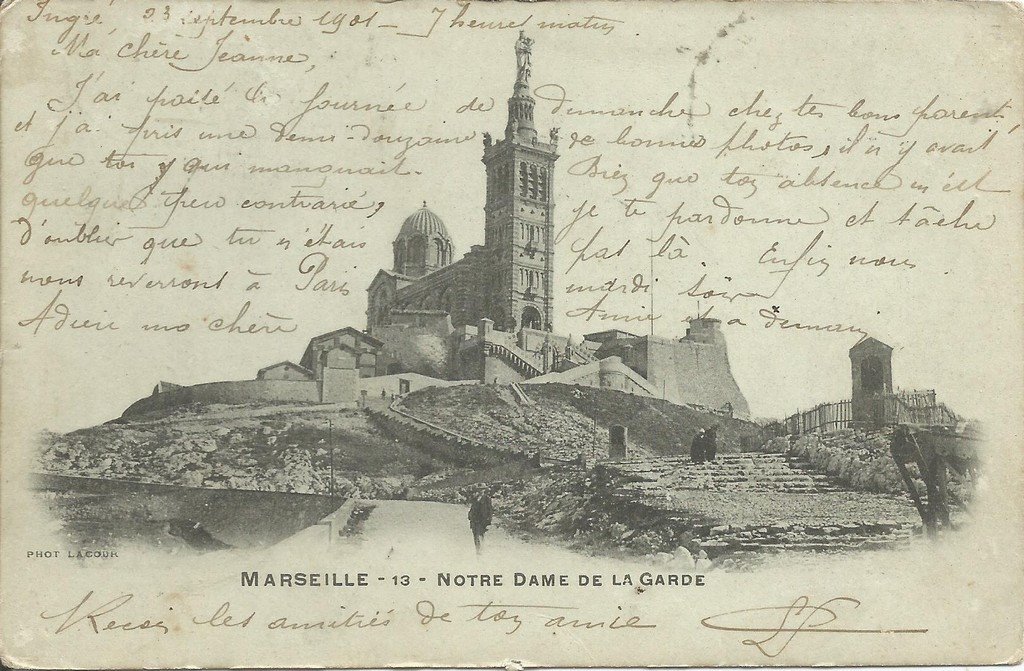 Ingré 23 septembre 1901 - 7 heures matin
Ma chère Jeanne,
J'ai passé la journée de dimanche chez tes bons parents
et j'ai pris une demi-douzaine de bonnes photos, il n'y avait
que toi y qui manquait. Bien que ton absence m'est
quelque peu contrarié, je te pardonne et tâche
d'oublier que tu n'étais pas là. Enfin nous
nous reverront à Paris mardi soir
Adieu ma chère Amie et à demain
PHOT LACOUR
MARSEILLE - 13 - NOTRE DAME DE LA GARDE
Reçois les amitiés de ton amie